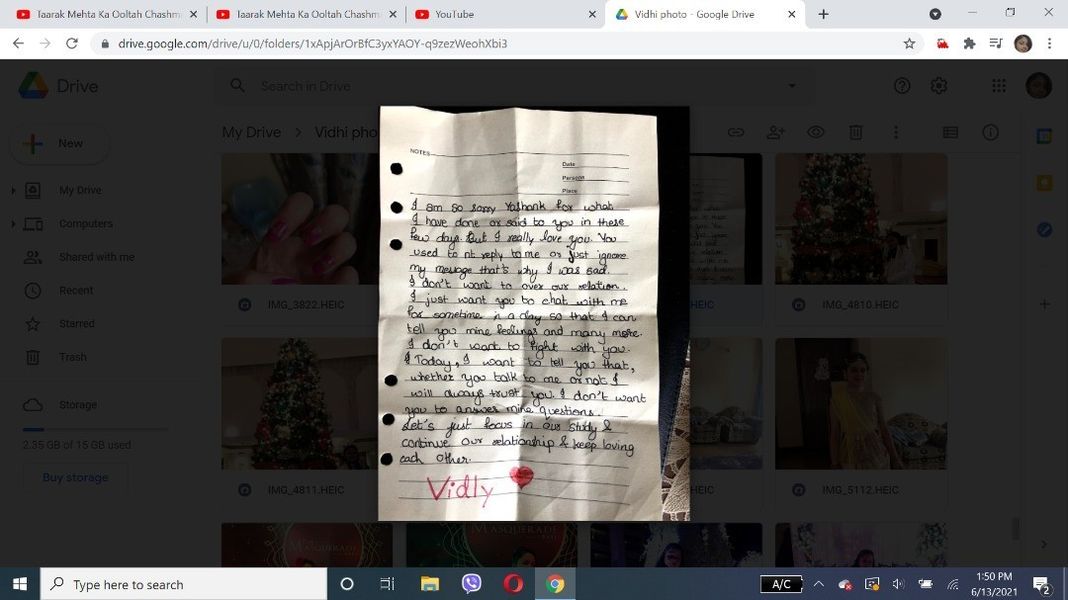 Taarak Mehta Ka Ooltah Chashm
Taarak Mehta Ka Ooltah Chashm
YouTube
Vidhi photo - Google Drive
drive.google.com/drive/u/0/folders/1xApjArOrBfC3yxYAOY-q9zezWeohXbi3
Drive
Search in Drive
New
My Drive
Computers
Shared with me
Recent
Starred
Trash
Storage
2.35 GB of 15 GB used
Buy storage
My Drive > Vidhi pho
IMG_3822.HEIC
HEIC
IMG_4810.HEIC
IMG_4811.HEIC
HEIC
IMG_5112.HEIC
MASQUERADE
MASQUERADE
NOTES
Date
Person
Place
I am so sorry Yashank for what
I have done or said to you in these
few days. But I really love you. You
used to nt reply to me or just ignore
my message that's why I was sad.
I don't want to over our relation.
I just want you to chat with me
for sometime in a day so that I can
tell you mine feelings and many more.
I don't want to fight with you.
Today, I want to tell you that,
whether you talk to me or not I
will always trust you. I don't want
you to answer mine questions.
Let's just focus in our study &
continue our relationship & keep loving
each other.
Vidly
Type here to search
A/C
1:50 PM
6/13/2021
2